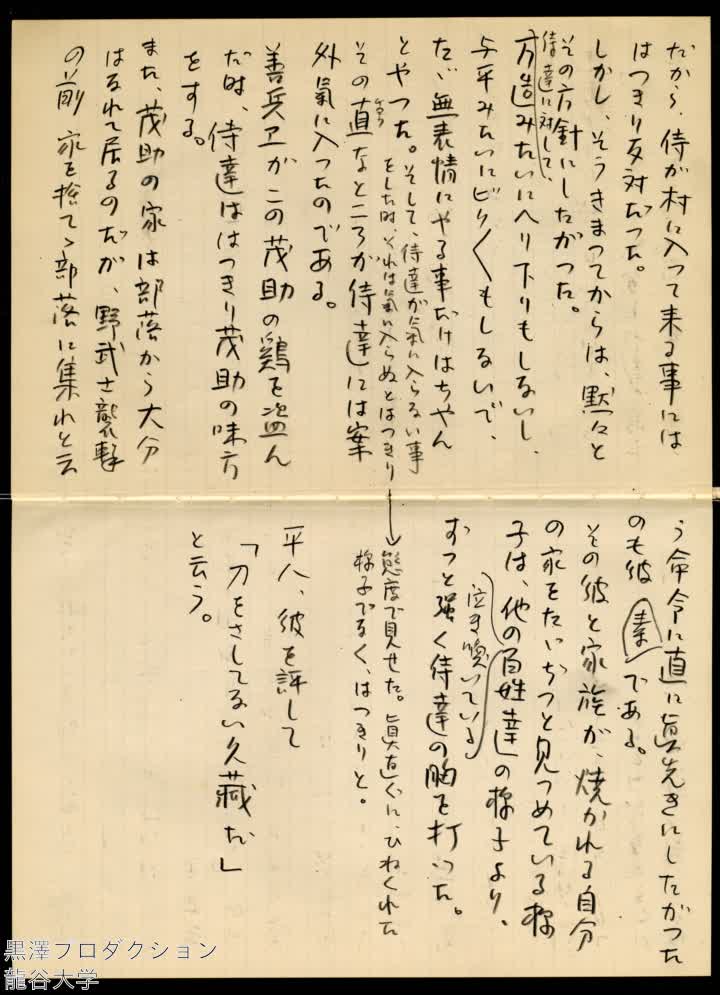 だから、侍が村に入って来る事には
はつきり反対だつた。
しかし、そうきまつてからは、黙々と
その方針にしたがつた。
侍達に対して、
万造みたいにヘリ下りもしないし、
与平みたいにビク〱もしないで、
たゞ無表情にやる事だけはちやん
とやつた。そして、侍達が気に入らない事
をした時、それは氣に入らぬとはつきり
その直なところが侍達には案
外氣に入つたのである。
善兵ヱがこの茂助の鶏を盗ん
だ時、侍達ははつきり茂助の味方
をする。
また、茂助の家は部落から大分
はなれて居るのだが、野武士襲撃
の前 家を捨てゝ部落に集れと云
う命令に直に眞先きにしたがつた
のも彼 である。
その彼と家族が、焼かれる自分
の家をたゞぢつと見つめている様
子は、他の百姓達の様子より、
泣き喚いている
ずつと強く侍達の胸を打つた。
態度で見せた。眞直ぐに、ひねくれた
様子でなく、はつきりと。
平八、彼を評して
「刀をさしてない久藏だ」
と云う。
黒澤プロダクション
龍谷大学